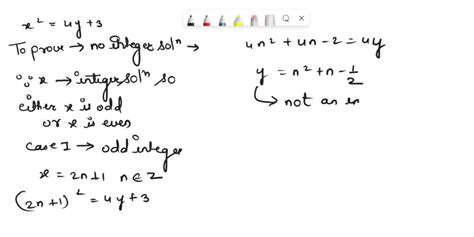 x² = 4y+3
To prove → no integer solⁿ →
∵ x → integer solⁿ so
either x is odd
or x is even
case I → odd integer
x = 2n+1 n ∈ Z
(2n+1)² = 4y+3
4n² + 4n - 2 = 4y
y = n² + n - 1/2
↳ not an in